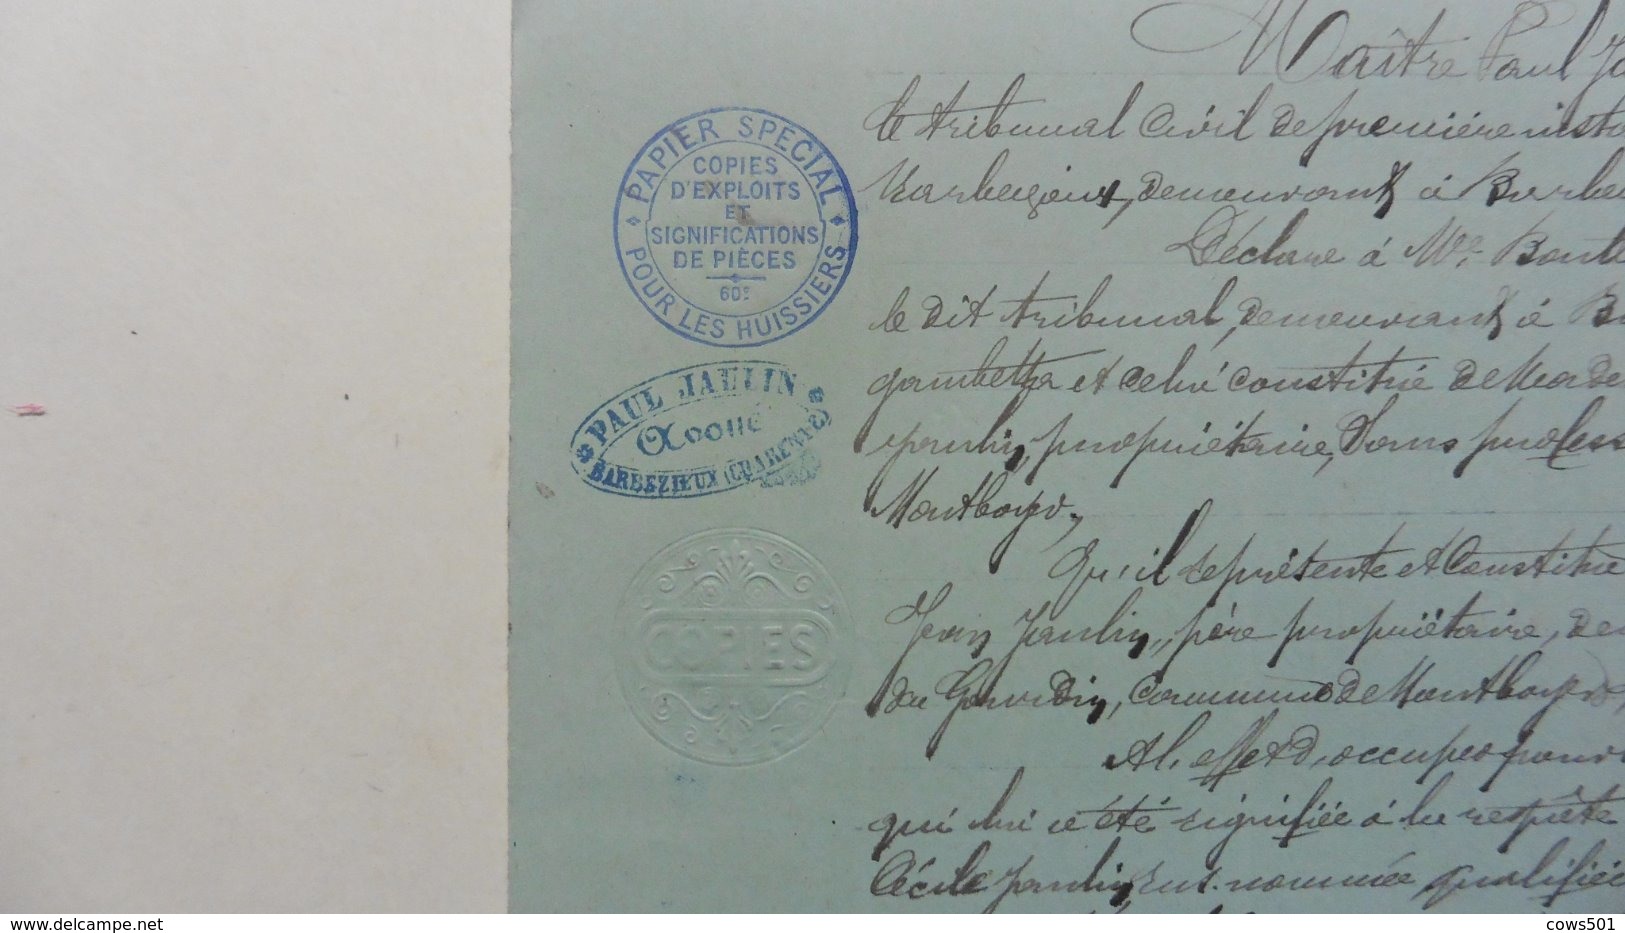 PAPIER SPECIAL
COPIES
D'EXPLOITS
ET
SIGNIFICATIONS
DE PIÈCES
60c
POUR LES HUISSIERS
PAUL JAULIN
Avoué
BARBEZIEUX (CHARENTE)
COPIES
Maître Paul Ja
le tribunal Civil de première insta
Barbezieux, demeurant à Barbe
Déclare à Me Bout
le dit tribunal, demeurant à B
gambetta et celui constitué de Made
Jaulin, propriétaire, Sans profess
Montboyer,
Qu'il représente et Constitue
Jean Jaulin, père propriétaire, de
du Gourdin, Commune de Montboyer,
A l'effet d'occuper pour
qui lui a été signifiée à la requête
Cécile Jaulin, sus-nommée, qualifiée
delcampe.net
cows501